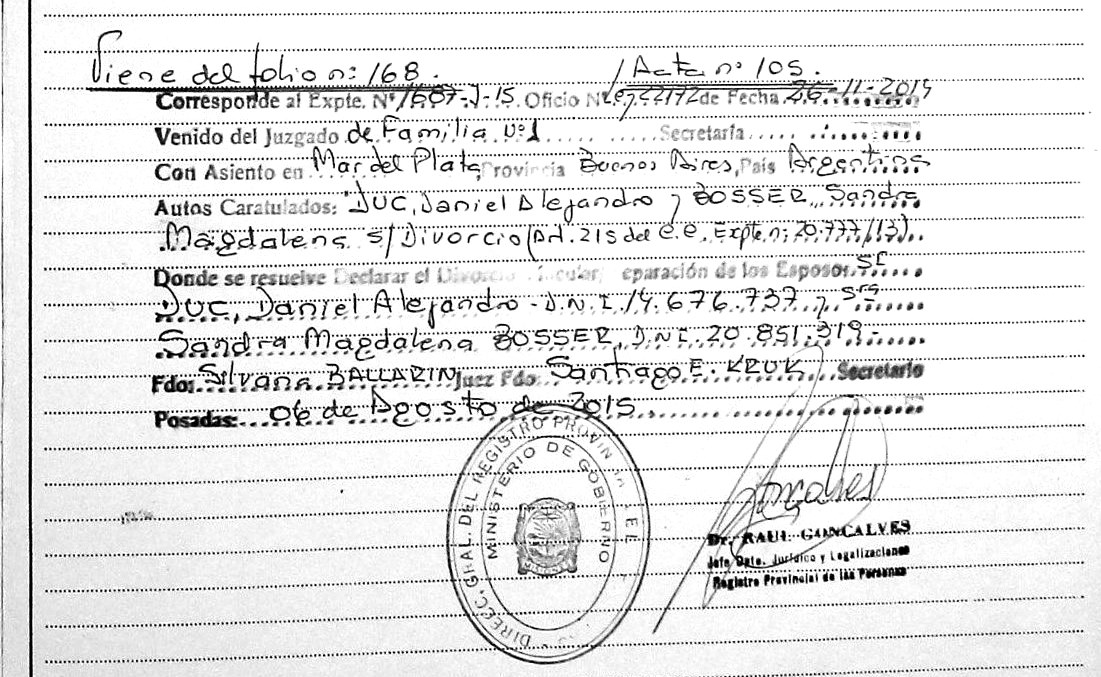 Viene del folio n: 168. / Acta nº 105.
Corresponde al Expte. Nº 1687-J-15. Oficio Nº Ley.22172 de Fecha 26-11-2015
Venido del Juzgado de Familia Nº 1 ..... Secretaría .....
Con Asiento en Mar del Plata, Provincia Buenos Aires, País Argentina
Autos Caratulados: DUC, Daniel Alejandro y BOSSER, Sandra
Magdalena s/ Divorcio (Art. 215 del C.C. Expte n: 20.777/13).
Donde se resuelve Declarar el Divorcio Vincular, eparación de los Esposos Sr
DUC, Daniel Alejandro - D.N.I. 14.676.737 y Sra
Sandra Magdalena BOSSER, D.N.I. 20.851.319.-
Fdo: Silvana BALLARIN Juez Fdo: Santiago E. KRUK. Secretario
Posadas: 06 de Agosto de 2015.
DIREC. GRAL. DEL REGISTRO PROVIN
MINISTERIO DE GOBIERNO
Goncalves
Dr. RAUL GONCALVES
Jefe Dpto. Jurídico y Legalizaciones
Registro Provincial de las Personas